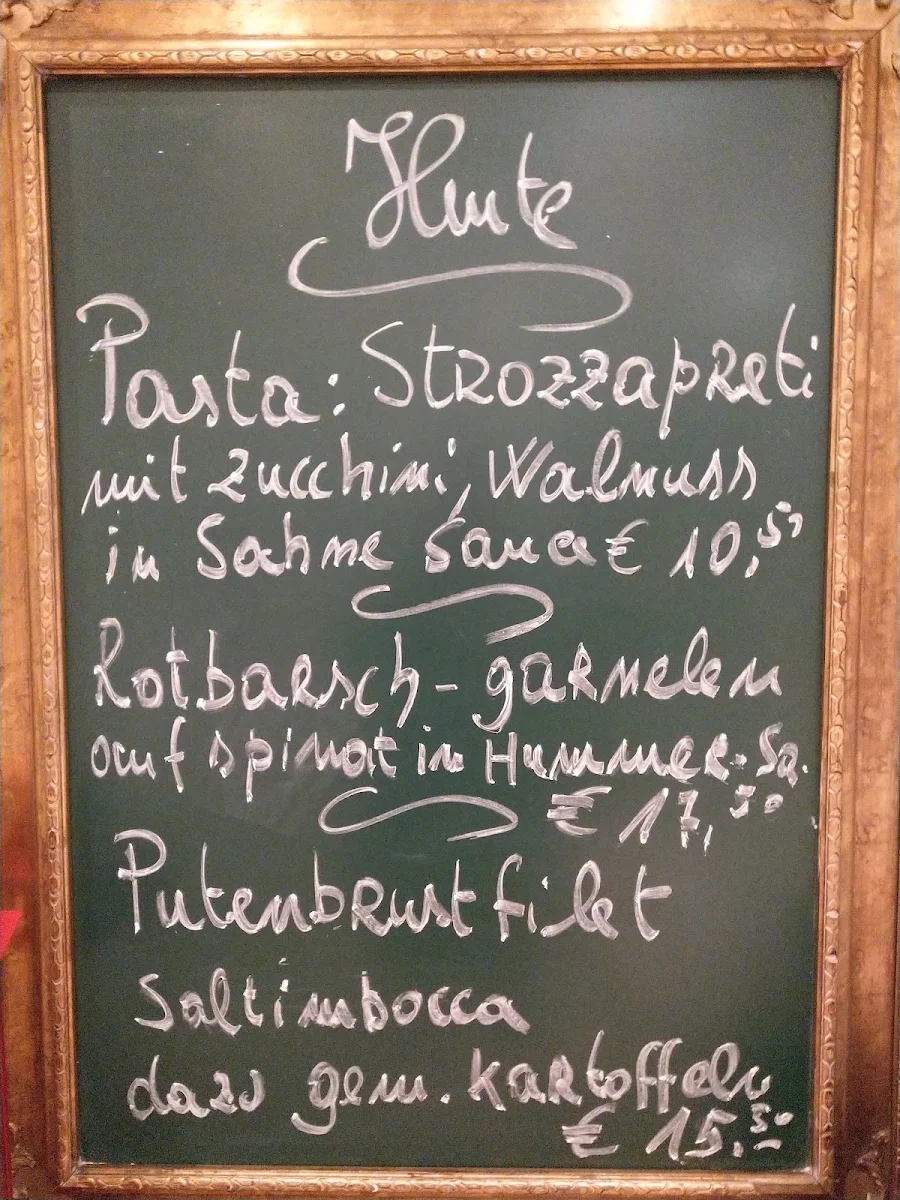 Heute
Pasta: Strozzapreti
mit Zucchini, Walnuss
in Sahne Sauce € 10,50
Rotbarsch - garnelen
auf spinat in Hummer-Sa.
€ 17,50
Putenbrust filet
Saltimbocca
dazu gem. Kartoffeln
€ 15.50